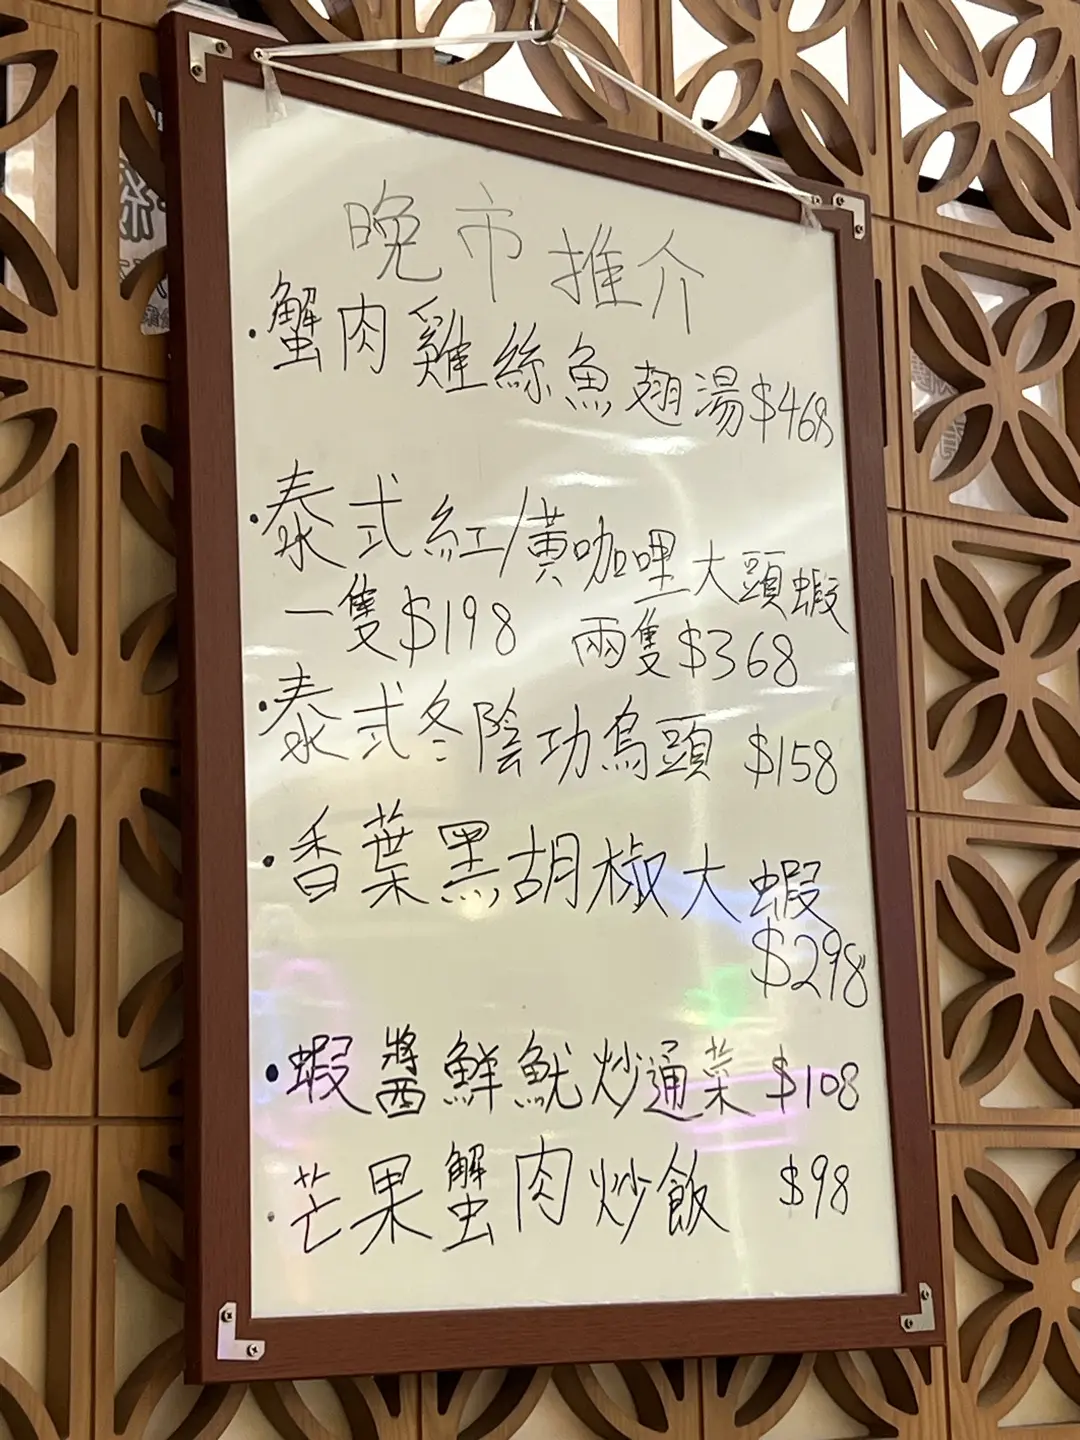 晚市推介
·蟹肉雞絲魚翅湯$468
·泰式紅/黃咖哩大頭蝦
一隻$198 兩隻$368
·泰式冬陰功烏頭 $158
·香葉黑胡椒大蝦
$298
·蝦醬鮮魷炒通菜 $108
·芒果蟹肉炒飯 $98